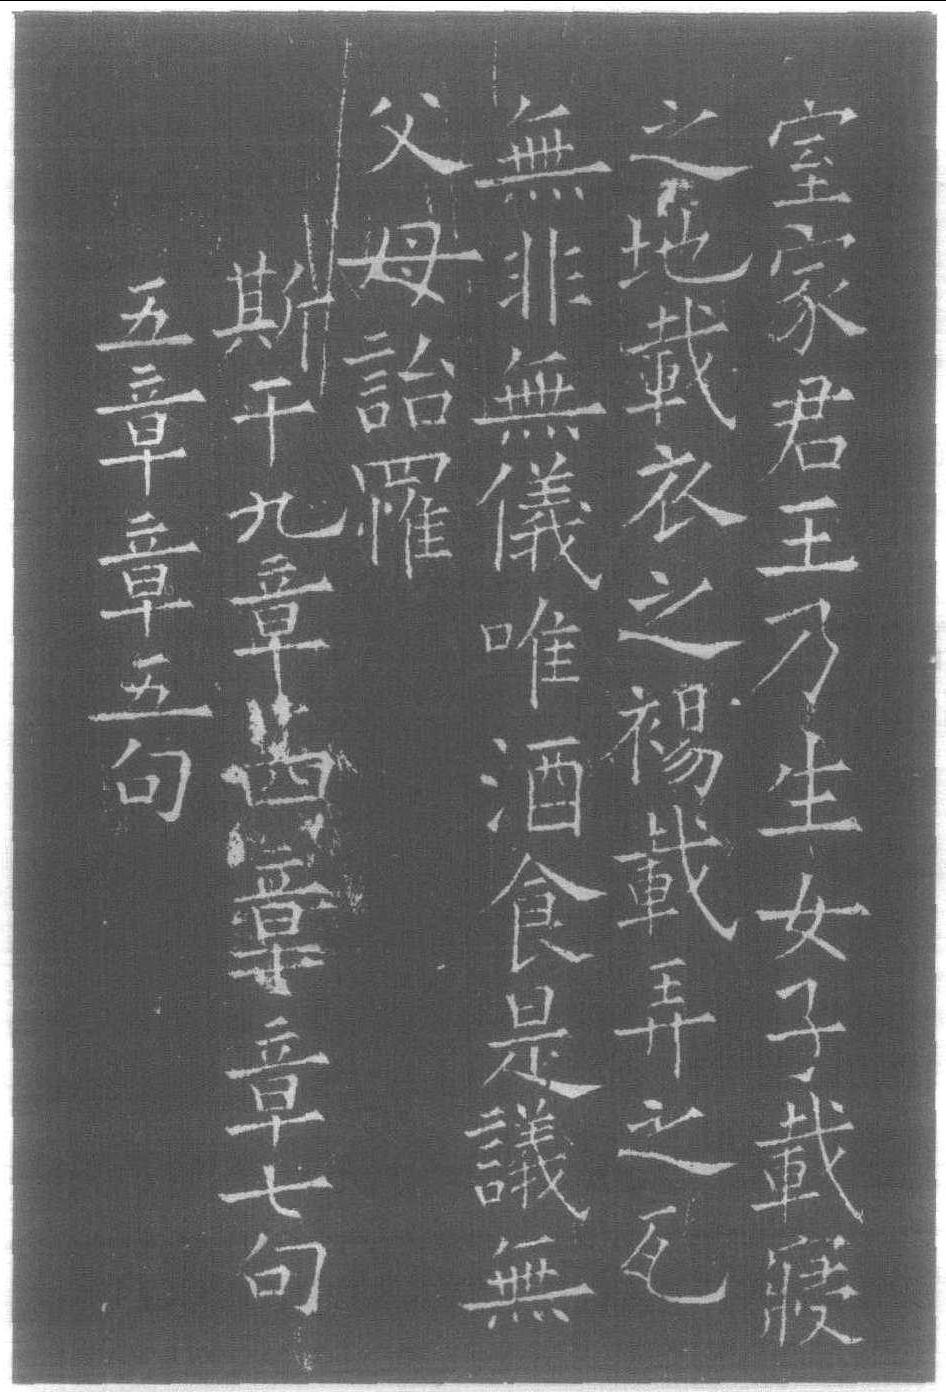 室家君王乃生女子載寢
之地載衣之裼載弄之瓦
無非無儀唯酒食是議無
父母詒罹
斯干九章四章章七句
五章章五句